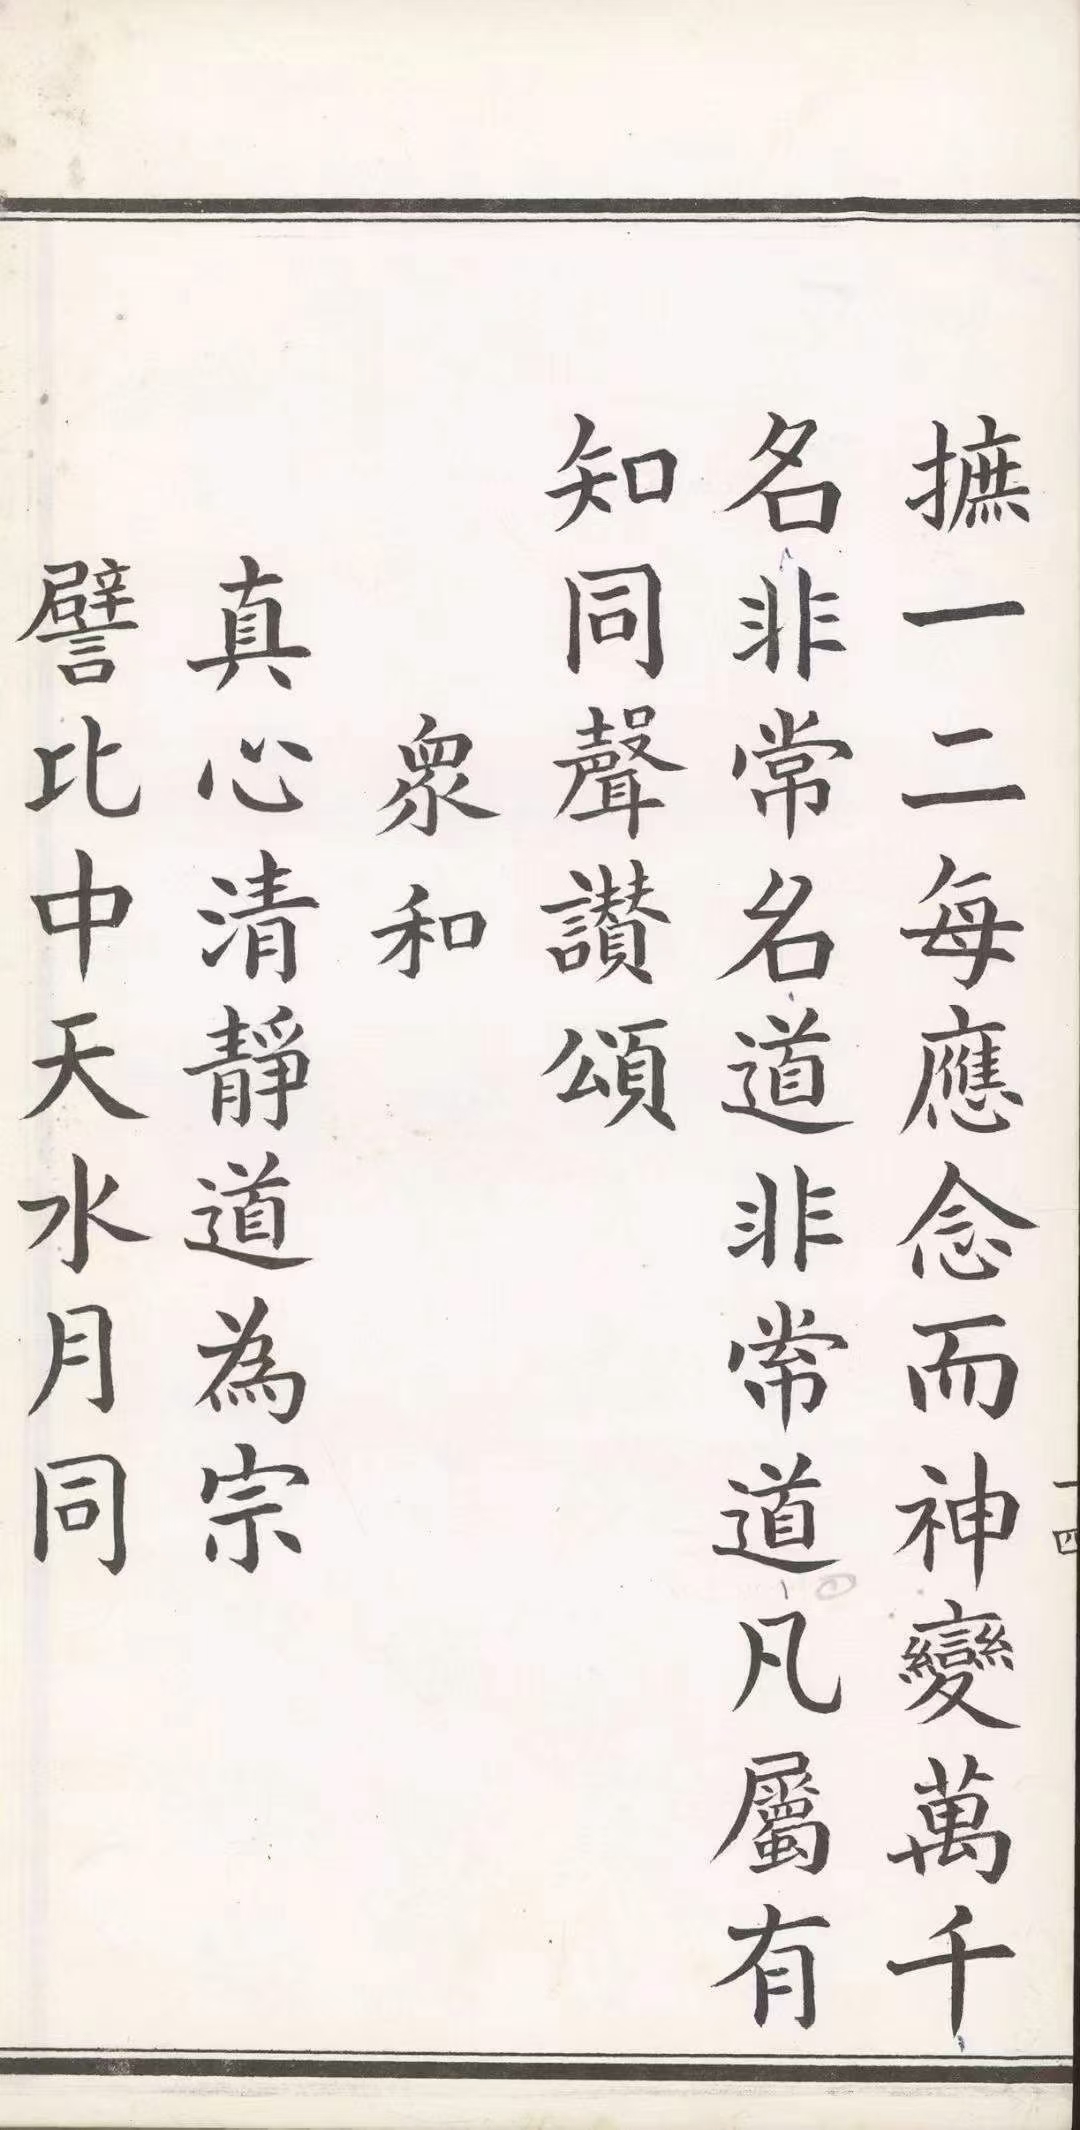 摭一二每應念而神變萬千
名非常名道非常道凡屬有
知同聲讚頌
眾和
真心清靜道為宗
譬比中天水月同
十四